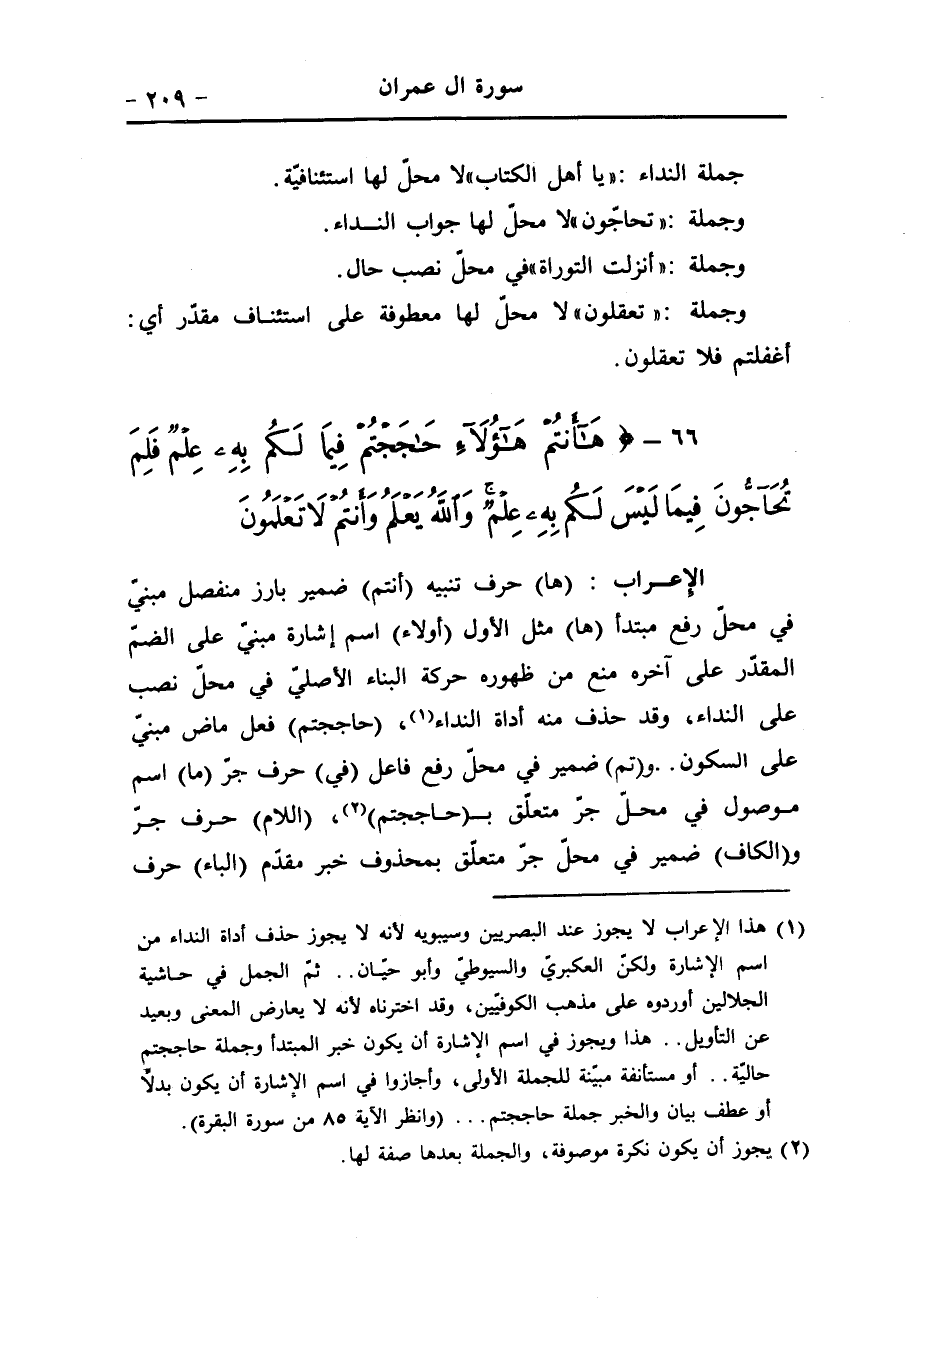 سورة ال عمران
- ٢٠٩ -
جملة النداء :«يا أهل الكتاب»لا محلّ لها استئنافيّة.
وجملة :« تحاجّون»لا محلّ لها جواب النـــداء.
وجملة :« أنزلت التوراة»في محلّ نصب حال.
وجملة :« تعقلون» لا محلّ لها معطوفة على استئنـاف مقدّر أي:
أغفلتم فلا تعقلون.
٦٦ - ﴿ هَـٰٓأَنتُمْ هَـٰٓؤُلَآءِ حَـٰجَجْتُمْ فِيمَا لَكُم بِهِۦ عِلْمٌ فَلِمَ
تُحَآجُّونَ فِيمَا لَيْسَ لَكُم بِهِۦ عِلْمٌ ۚ وَٱللَّهُ يَعْلَمُ وَأَنتُمْ لَا تَعْلَمُونَ
الإعـــراب : (ها) حرف تنبيه (أنتم) ضمير بارز منفصل مبنيّ
في محلّ رفع مبتدأ (ها) مثل الأول (أولاء) اسم إشارة مبنيّ على الضمّ
المقدّر على آخره منع من ظهوره حركة البناء الأصليّ في محلّ نصب
على النداء، وقد حذف منه أداة النداء(١)، (حاججتم) فعل ماض مبنيّ
على السكون. .و(تم) ضمير في محلّ رفع فاعل (في) حرف جرّ (ما) اسم
موصول في محلّ جرّ متعلّق بـ(حاججتم)(٢)، (اللام) حرف جرّ
و(الكاف) ضمير في محلّ جرّ متعلّق بمحذوف خبر مقدّم (الباء) حرف
(١) هذا الإعراب لا يجوز عند البصريين وسيبويه لأنه لا يجوز حذف أداة النداء من
اسم الإشارة ولكنّ العكبريّ والسيوطيّ وأبو حيّـان. . ثمّ الجمل في حاشية
الجلالين أوردوه على مذهب الكوفيّين، وقد اخترناه لأنه لا يعارض المعنى وبعيد
عن التأويل. . هذا ويجوز في اسم الإشارة أن يكون خبر المبتدأ وجملة حاججتم
حاليّة. . أو مستأنفة مبيّنة للجملة الأولى، وأجازوا في اسم الإشارة أن يكون بدلاً
أو عطف بيان والخبر جملة حاججتم. . . (وانظر الآية ٨٥ من سورة البقرة).
(٢) يجوز أن يكون نكرة موصوفة، والجملة بعدها صفة لها.